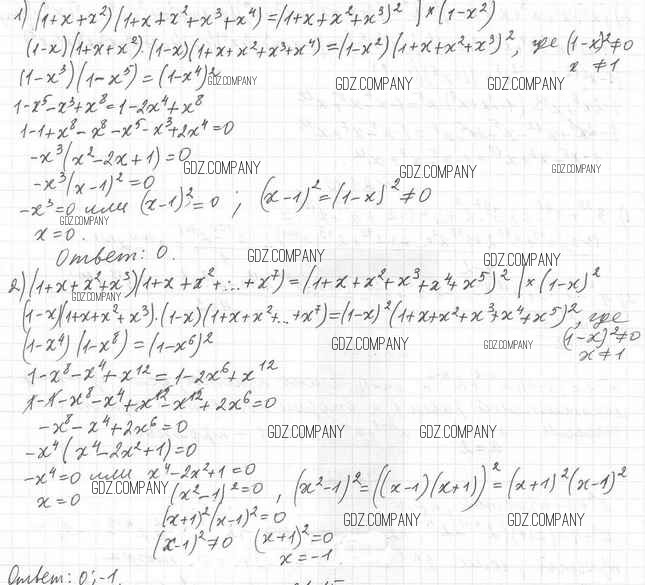 1) (1+x+x²)(1+x+x²+x³+x⁴)=(1+x+x²+x³)² ] × (1-x²)
(1-x)(1+x+x²)·(1-x)(1+x+x²+x³+x⁴)=(1-x²)(1+x+x²+x³)², где (1-x)²≠0
x ≠1
(1-x³)(1-x⁵)=(1-x⁴)²
GDZ.COMPANY GDZ.COMPANY GDZ.COMPANY
1-x⁵-x³+x⁸=1-2x⁴+x⁸
1-1+x⁸-x⁸-x⁵-x³+2x⁴=0
-x³(x²-2x+1)=0
GDZ.COMPANY GDZ.COMPANY GDZ.COMPANY
-x³(x-1)²=0
-x³=0 или (x-1)²=0 ; (x-1)²=(1-x)²≠0
GDZ.COMPANY
x=0.
Ответ: 0.
GDZ.COMPANY GDZ.COMPANY
2) (1+x+x²+x³)(1+x+x²+...+x⁷)=(1+x+x²+x³+x⁴+x⁵)² | × (1-x)²
GDZ.COMPANY
(1-x)(1+x+x²+x³)·(1-x)(1+x+x²+...+x⁷)=(1-x)²(1+x+x²+x³+x⁴+x⁵)², где
(1-x)²≠0
x≠1
(1-x⁴)(1-x⁸)=(1-x⁶)²
GDZ.COMPANY GDZ.COMPANY
1-x⁸-x⁴+x¹²=1-2x⁶+x¹²
1-1-x⁸-x⁴+x¹²-x¹²+2x⁶=0
-x⁸-x⁴+2x⁶=0
GDZ.COMPANY GDZ.COMPANY
-x⁴(x⁴-2x²+1)=0
-x⁴=0 или x⁴-2x²+1=0
x=0 GDZ.COMPANY (x²-1)²=0 , (x²-1)²=((x-1)(x+1))²=(x+1)²(x-1)²
(x+1)²(x-1)²=0
GDZ.COMPANY GDZ.COMPANY
(x-1)²≠0 (x+1)²=0
x=-1.
Ответ: 0;-1.